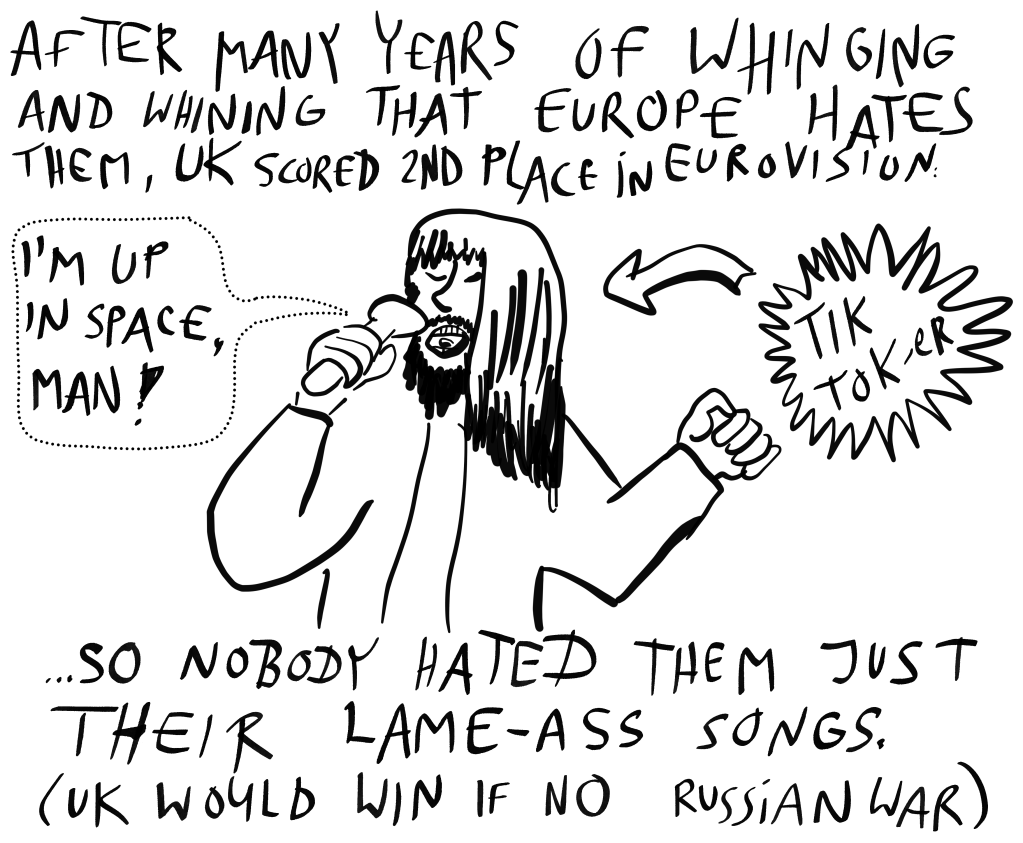 AFTER MANY YEARS OF WHINGING
AND WHINING THAT EUROPE HATES
THEM, UK SCORED 2ND PLACE IN EUROVISION.
I'M UP
IN SPACE,
MAN!
TIK
TOK-ER
...SO NOBODY HATED THEM JUST
THEIR LAME-ASS SONGS.
(UK WOULD WIN IF NO RUSSIAN WAR)